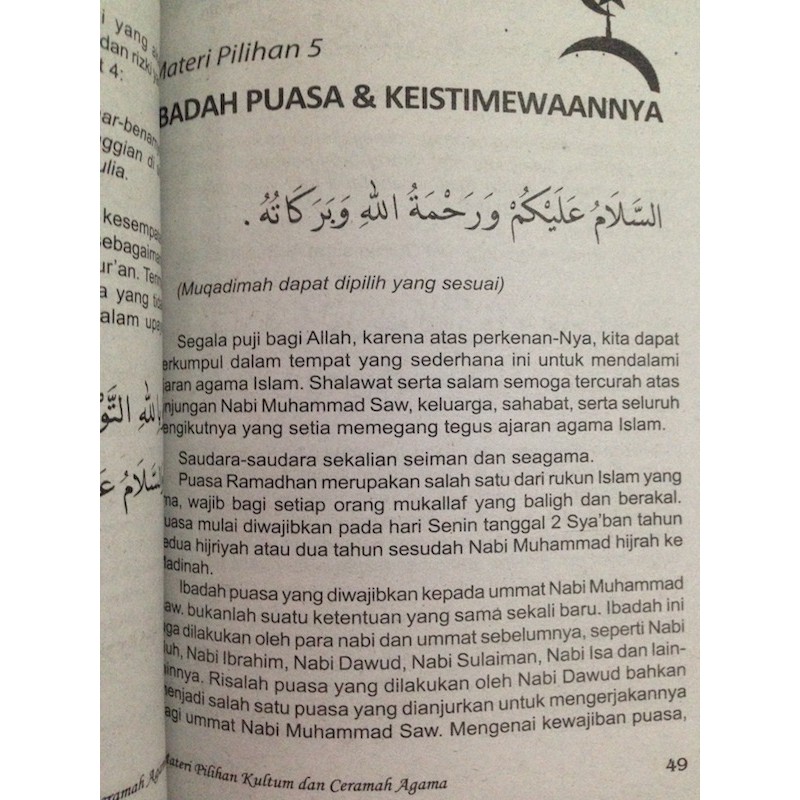 i yang
dan rizki
t 4:
ar-bena
ggian di
ulia.
kesempa
sebagaima
ur'an. Tem
a yang tid
alam upa
بِاللهِ التَّوْ
السَّلَامُ عَ
Ceramah Aga
Materi Pilihan 5
BADAH PUASA & KEISTIMEWAANNYA
السَّلَامُ عَلَيْكُمْ وَرَحْمَةُ اللهِ وَبَرَكَاتُهُ .
(Muqadimah dapat dipilih yang sesuai)
Segala puji bagi Allah, karena atas perkenan-Nya, kita dapat
erkumpul dalam tempat yang sederhana ini untuk mendalami
jaran agama Islam. Shalawat serta salam semoga tercurah atas
njungan Nabi Muhammad Saw, keluarga, sahabat, serta seluruh
engikutnya yang setia memegang tegus ajaran agama Islam.
Saudara-saudara sekalian seiman dan seagama.
Puasa Ramadhan merupakan salah satu dari rukun Islam yang
ma, wajib bagi setiap orang mukallaf yang baligh dan berakal.
uasa mulai diwajibkan pada hari Senin tanggal 2 Sya'ban tahun
edua hijriyah atau dua tahun sesudah Nabi Muhammad hijrah ke
Madinah.
Ibadah puasa yang diwajibkan kepada ummat Nabi Muhammad
aw. bukanlah suatu ketentuan yang sama sekali baru. Ibadah ini
ga dilakukan oleh para nabi dan ummat sebelumnya, seperti Nabi
uh, Nabi Ibrahim, Nabi Dawud, Nabi Sulaiman, Nabi Isa dan lain-
innya. Risalah puasa yang dilakukan oleh Nabi Dawud bahkan
enjadi salah satu puasa yang dianjurkan untuk mengerjakannya
agi ummat Nabi Muhammad Saw. Mengenai kewajiban puasa,
Materi Pilihan Kultum dan Ceramah Agama
49